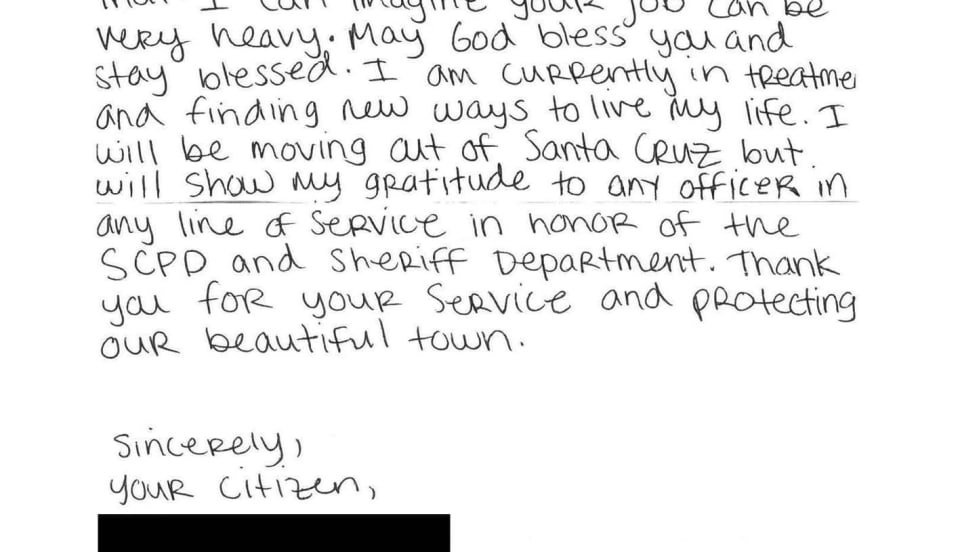 I can imagine your job can be
very heavy. May God bless you and
stay blessed. I am currently in treatme
and finding new ways to live my life. I
will be moving out of Santa Cruz but
will show my gratitude to any officer in
any line of service in honor of the
SCPD and Sheriff Department. Thank
you for your service and protecting
our beautiful town.
Sincerely,
your citizen,